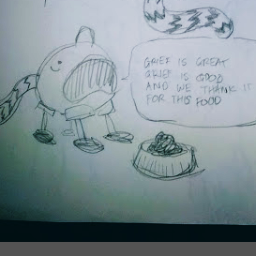 GRIEF IS GREAT
GRIEF IS GOOD
AND WE THANK IT
FOR THIS FOOD